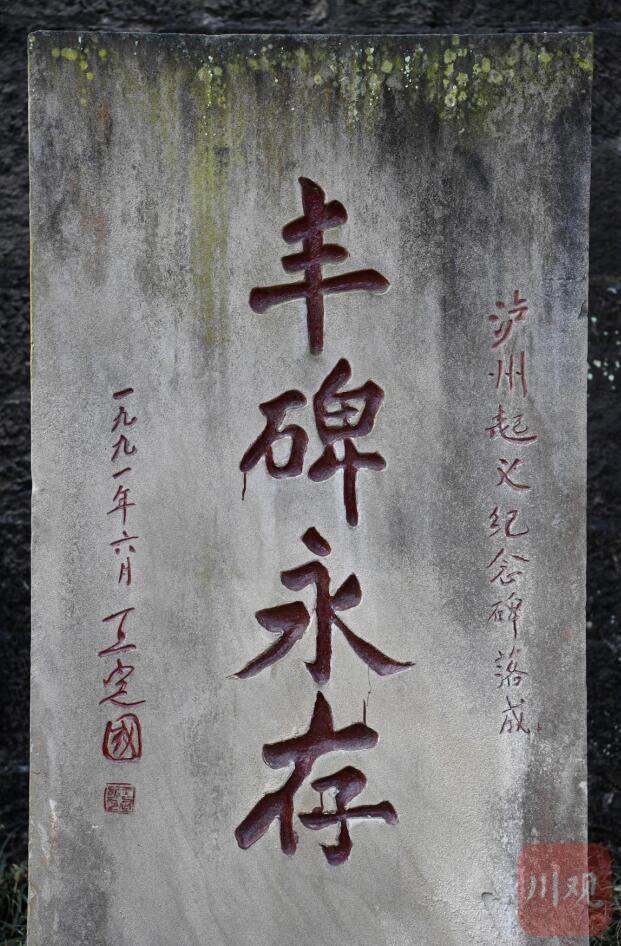 泸州起义纪念碑落成
丰碑永存
一九九一年六月
王定國
川观